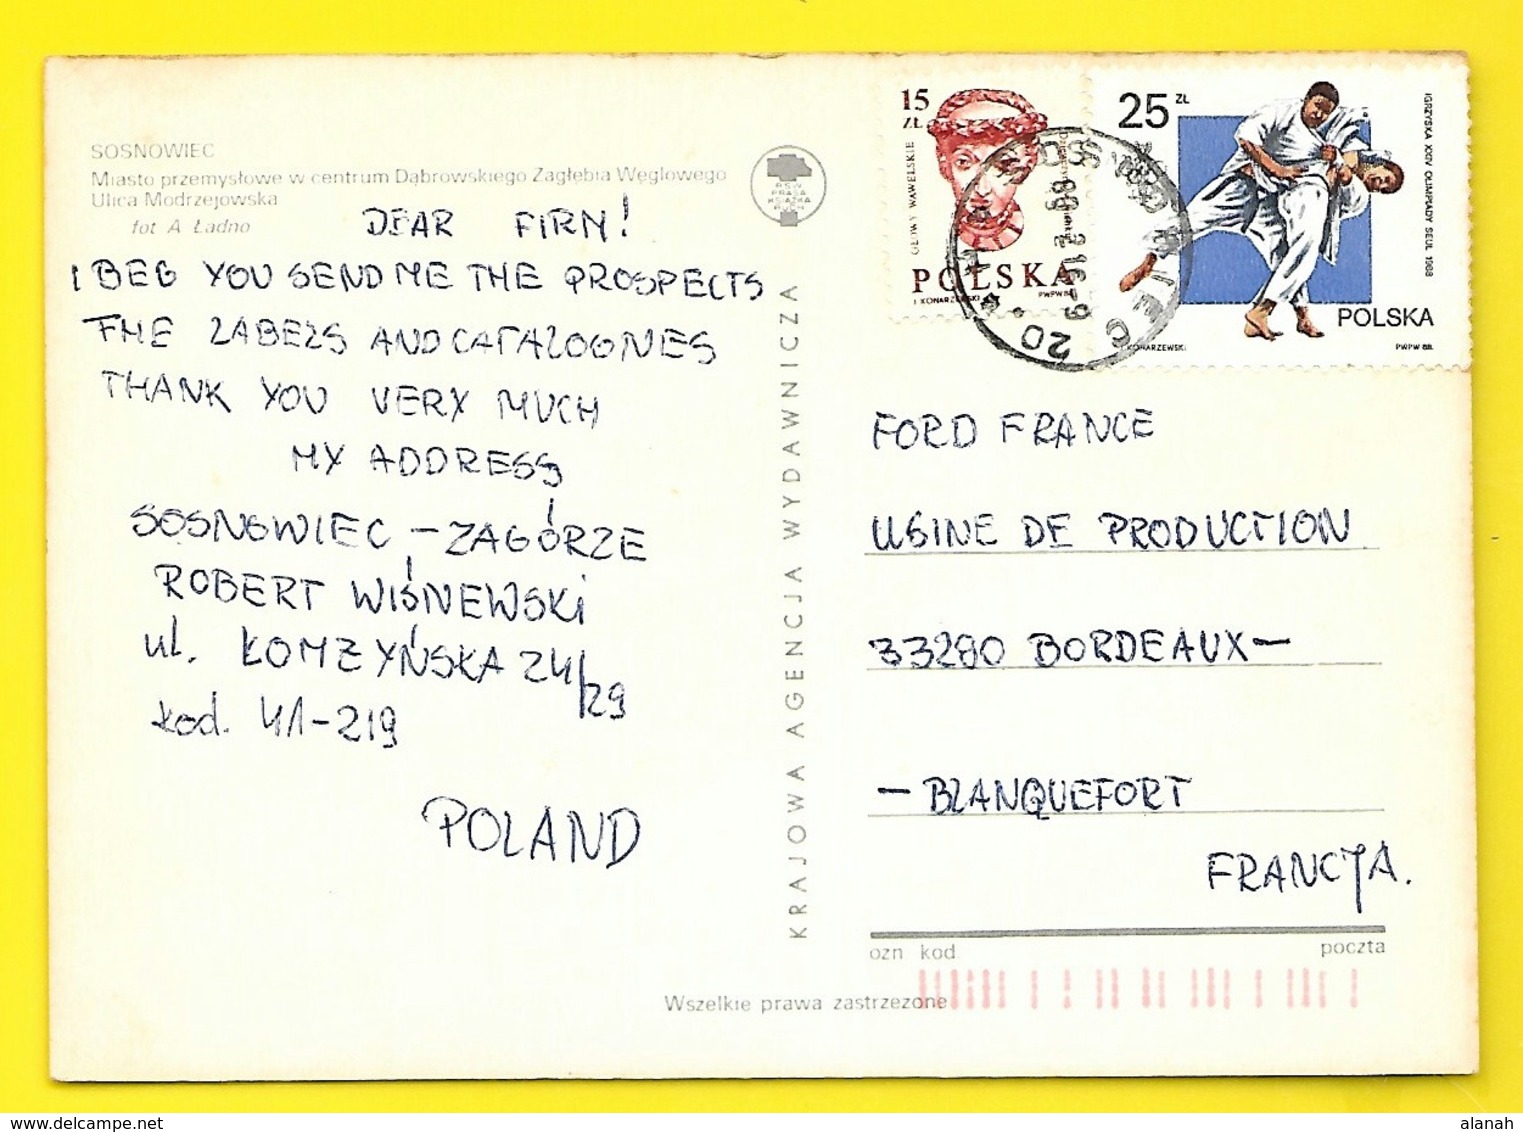 SOSNOWIEC
Miasto przemysłowe w centrum Dąbrowskiego Zagłębia Węglowego
Ulica Modrzejowska
fot A Ładno
DEAR FIRM!
I BEG YOU SEND ME THE PROSPECTS
THE LABELS AND CATALOGNES
THANK YOU VERY MUCH
MY ADDRESS
SOSNOWIEC – ZAGÓRZE
ROBERT WIŚNEWSKI
ul. ŁOMZYŃSKA 24/29
kod. 41-219
POLAND
RSW
PRASA
KSIĄŻKA
RUCH
KRAJOWA AGENCJA WYDAWNICZA
15
ZŁ
GŁOWY WAWELSKIE
POLSKA
J. KONARZEWSKI PWPW
25 ZŁ
IGRZYSKA XXIV OLIMPIADY SEUL 1988
POLSKA
J. KONARZEWSKI PWPW 88.
SOSNOWIEC
20
FORD FRANCE
USINE DE PRODUCTION
33280 BORDEAUX –
– BLANQUEFORT
FRANCJA.
ozn kod poczta
Wszelkie prawa zastrzezone
delcampe.net
alanah